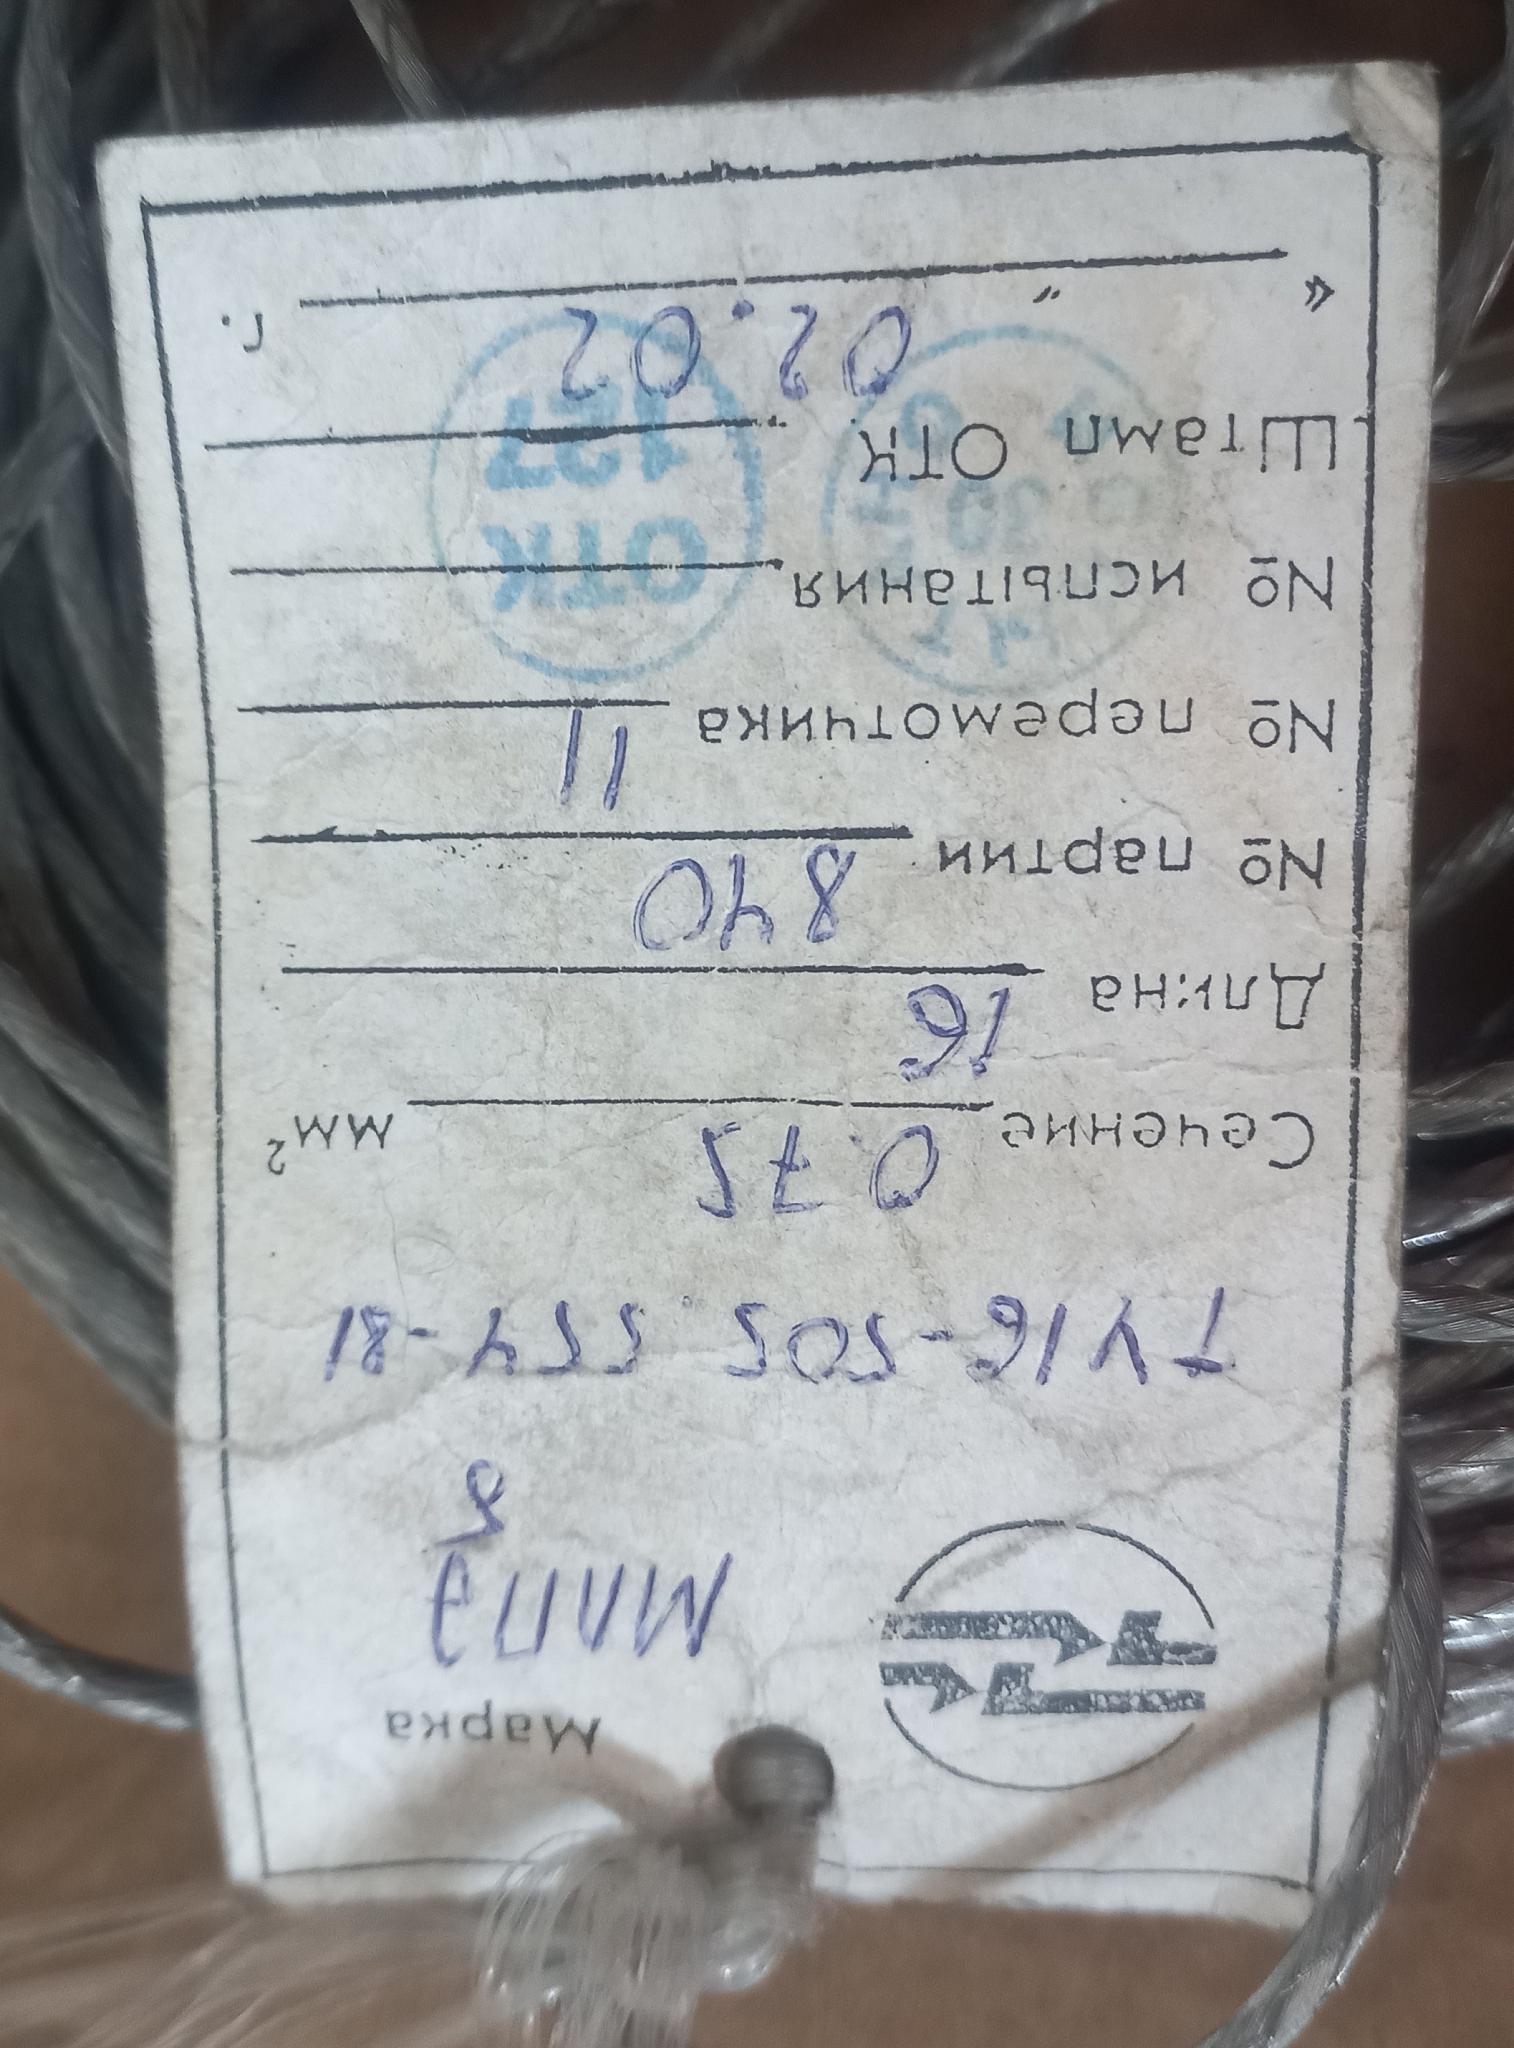 Марка
МЛПЭ
ТУ16-505.554-81
Сечение 0.75 мм²
Длина 16
№ партии 840
№ перемотчика 11
№ испытания
ОТК
Штамп ОТК
« " 02.02 г.